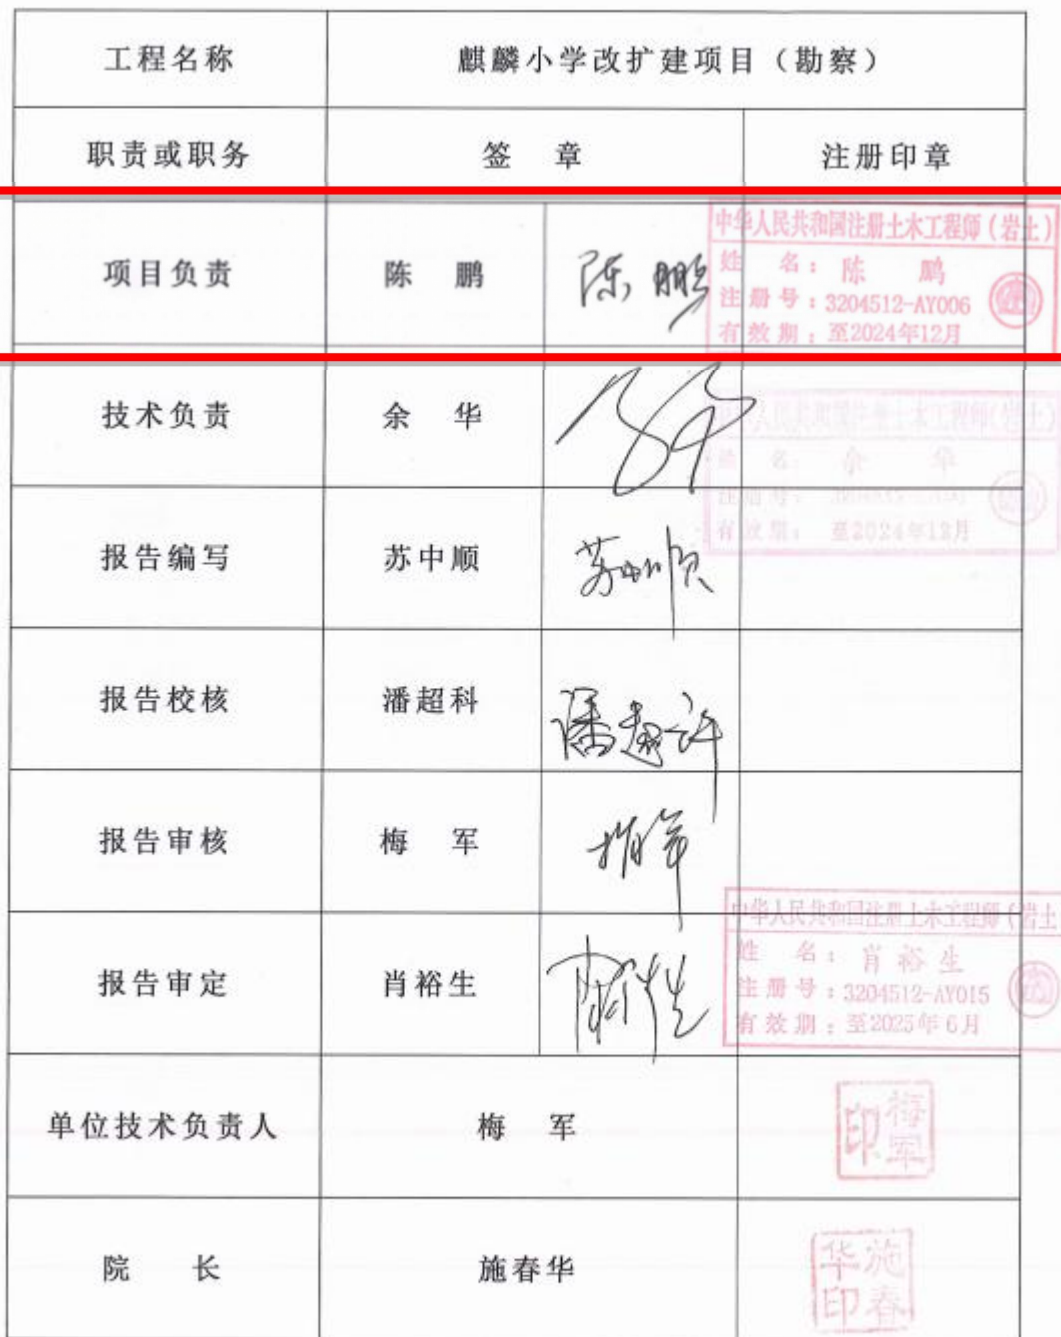 工程名称
麒麟小学改扩建项目（勘察）
职责或职务
签 章
注册印章
项目负责
陈 鹏
陈鹏
中华人民共和国注册土木工程师（岩土）
姓 名：陈 鹏
注册号：3204512-AY006
有效期：至2024年12月
技术负责
余 华
中华人民共和国注册土木工程师(岩土)
姓 名： 余 华
注册号：
有效期： 至2024年12月
报告编写
苏中顺
苏中顺
报告校核
潘超科
报告审核
梅 军
梅军
报告审定
肖裕生
中华人民共和国注册土木工程师（岩土
姓 名：肖裕生
注册号：3204512-AY015
有效期：至2025年6月
单位技术负责人
梅 军
梅军印
院 长
施春华
施春华印